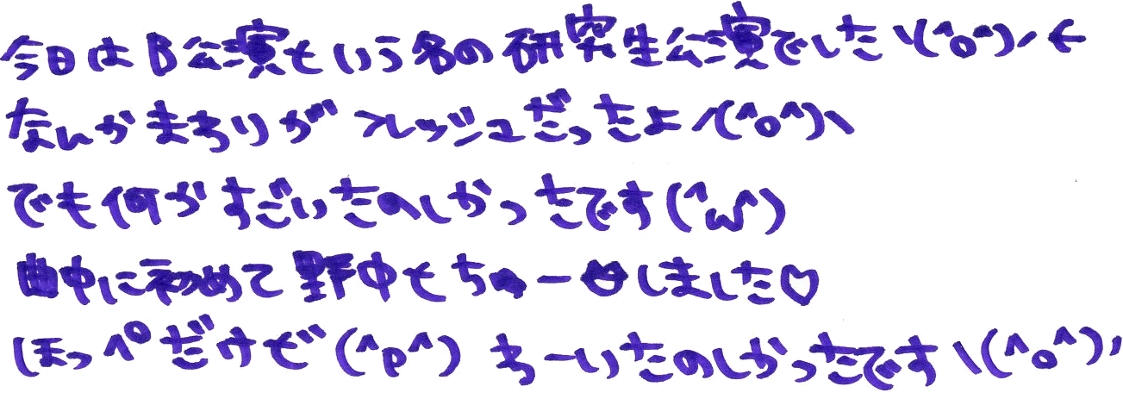 今日はB公演という名の研究生公演でした\(^o^)/←
なんかまちりがフレッシュだったよ/(^o^)\
でも何かすごいたのしかったです(^ω^)
曲中に初めて野中とちゅーしました♡
ほっぺだけど(^p^) ちーいたのしかったです\(^o^)/